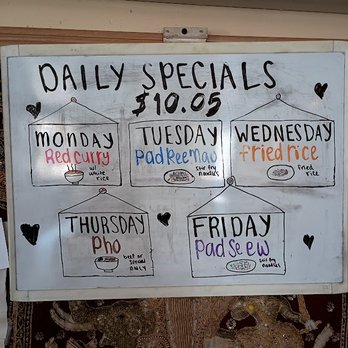 DAILY SPECIALS
$10.05
MONDAY
Red curry
w/ white rice
TUESDAY
Pad Kee Mau
stir fry noodles
WEDNESDAY
fried rice
fried rice
THURSDAY
Pho
beef or
ONLY
FRIDAY
Pad See ew
stir fry noodles